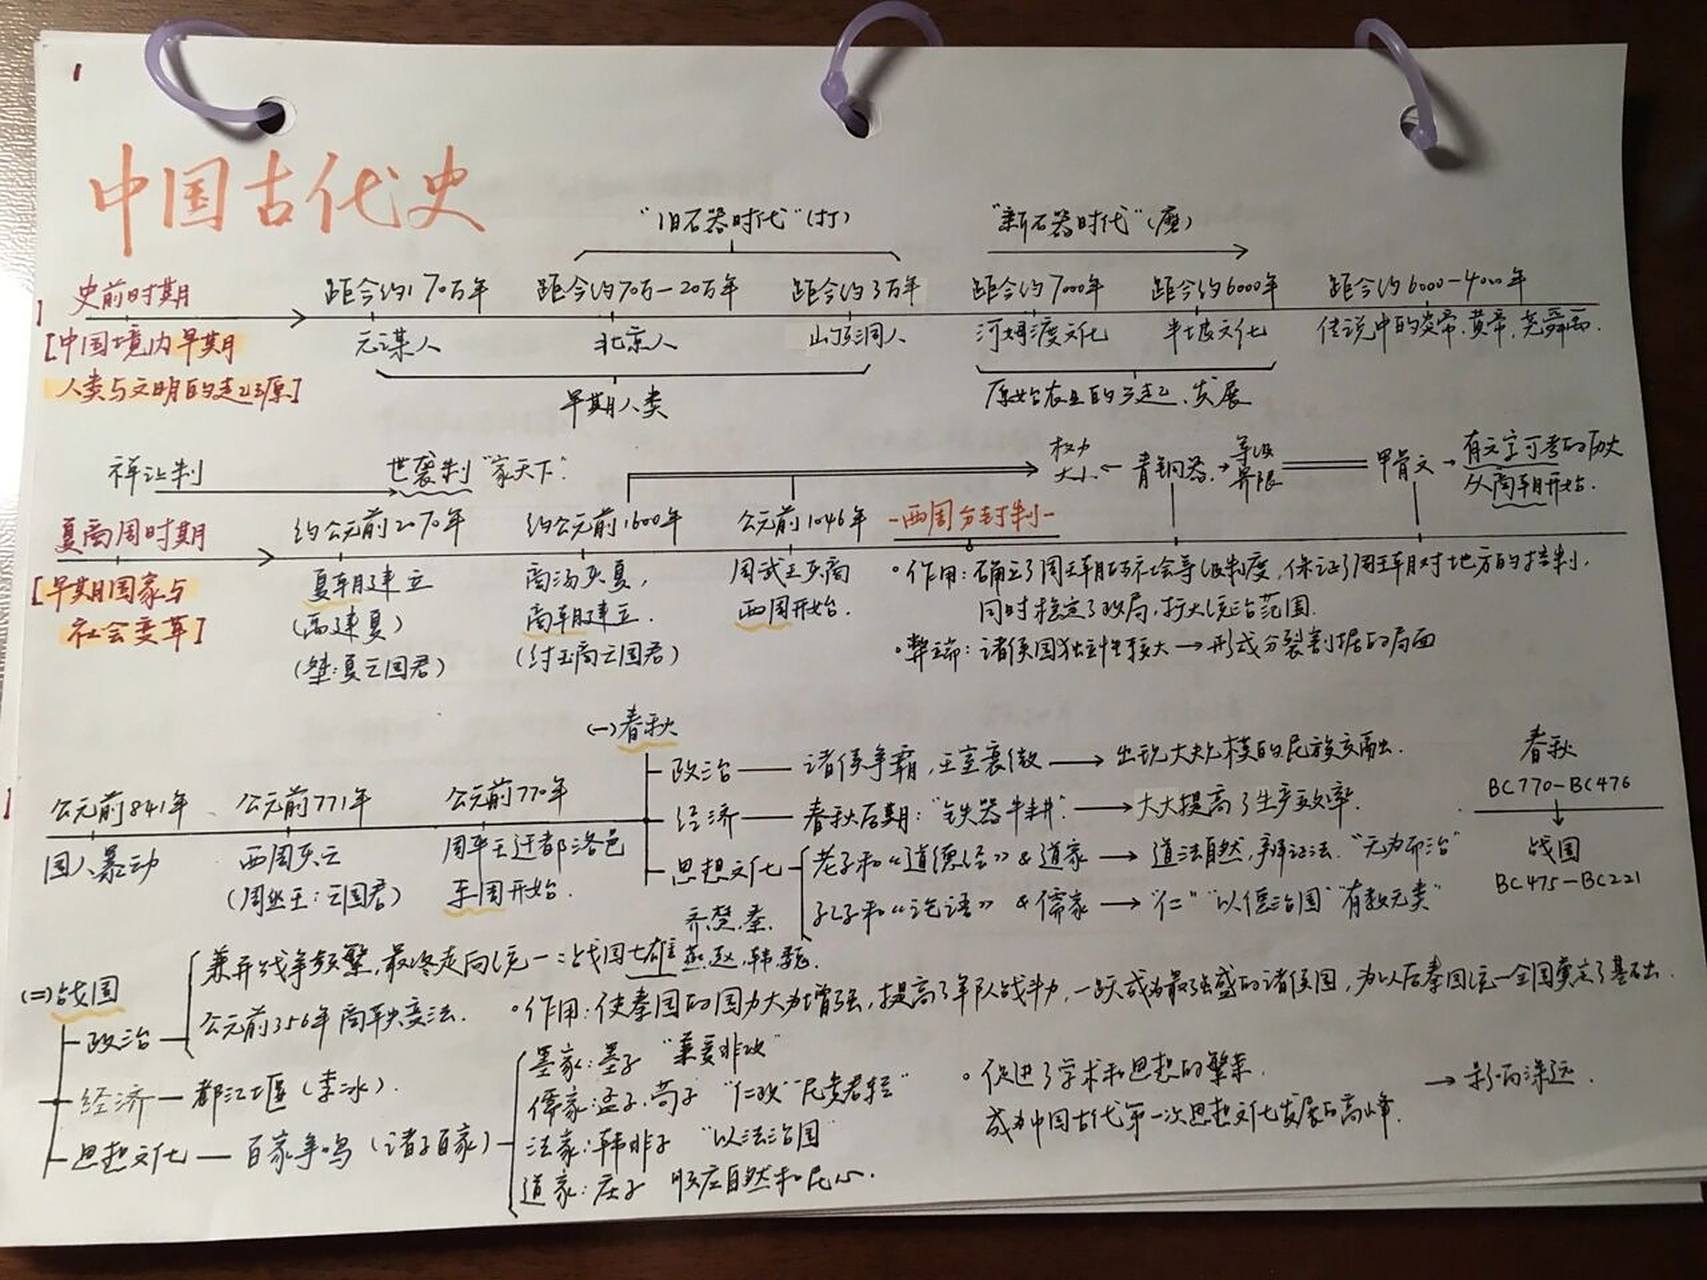 1
中国古代史
"旧石器时代"(打) "新石器时代"(磨)
史前时期 距今约170万年 距今约70万-20万年 距今约3万年 距今约7000年 距今约6000年 距今约6000-4000年
[中国境内早期 元谋人 北京人 山顶洞人 河姆渡文化 半坡文化 传说中的炎帝、黄帝、尧舜禹.
人类与文明的起源] 早期人类 原始农业的兴起、发展
禅让制 世袭制 "家天下". 权力大小 ← 青铜器 → 等级界限 甲骨文 → 有文字可考的历史从商朝开始.
夏商周时期 约公元前2070年 约公元前1600年 公元前1046年 -西周分封制-
[早期国家与 夏朝建立 商汤灭夏, 周武王灭商 •作用:确立了周王朝的社会等级制度,保证了周王朝对地方的控制,
社会变革] (禹建夏) 商朝建立. 西周开始. 同时稳定了政局,扩大统治范围.
(桀:夏亡国君) (纣王商亡国君) •弊端:诸侯国独立性较大→形成分裂割据的局面
(一)春秋
政治 — 诸侯争霸,王室衰微 → 出现大规模的民族交融. 春秋
公元前841年 公元前771年 公元前770年 经济 — 春秋后期:"铁器牛耕". → 大大提高了生产效率. BC770-BC476
国人暴动 西周灭亡 周平王迁都洛邑 思想文化 老子和《道德经》& 道家 → 道法自然,辩证法."无为而治" 战国
(周幽王:亡国君) 东周开始. 孔子和《论语》& 儒家 → "仁" "以德治国" "有教无类" BC475-BC221
齐.楚.秦.
(二)战国 兼并战争频繁,最终走向统一:战国七雄 燕.赵.韩.魏.
政治 公元前356年商鞅变法. •作用:使秦国的国力大为增强,提高了军队战斗力,一跃成为最强盛的诸侯国,为以后秦国统一全国奠定了基础.
经济 — 都江堰(李冰).
思想文化 — 百家争鸣(诸子百家)
墨家:墨子 "兼爱非攻"
儒家:孟子.荀子 "仁政" "民贵君轻"
法家:韩非子 "以法治国"
道家:庄子 顺应自然和民心.
•促进了学术和思想的繁荣.
成为中国古代第一次思想文化发展的高峰. → 影响深远.